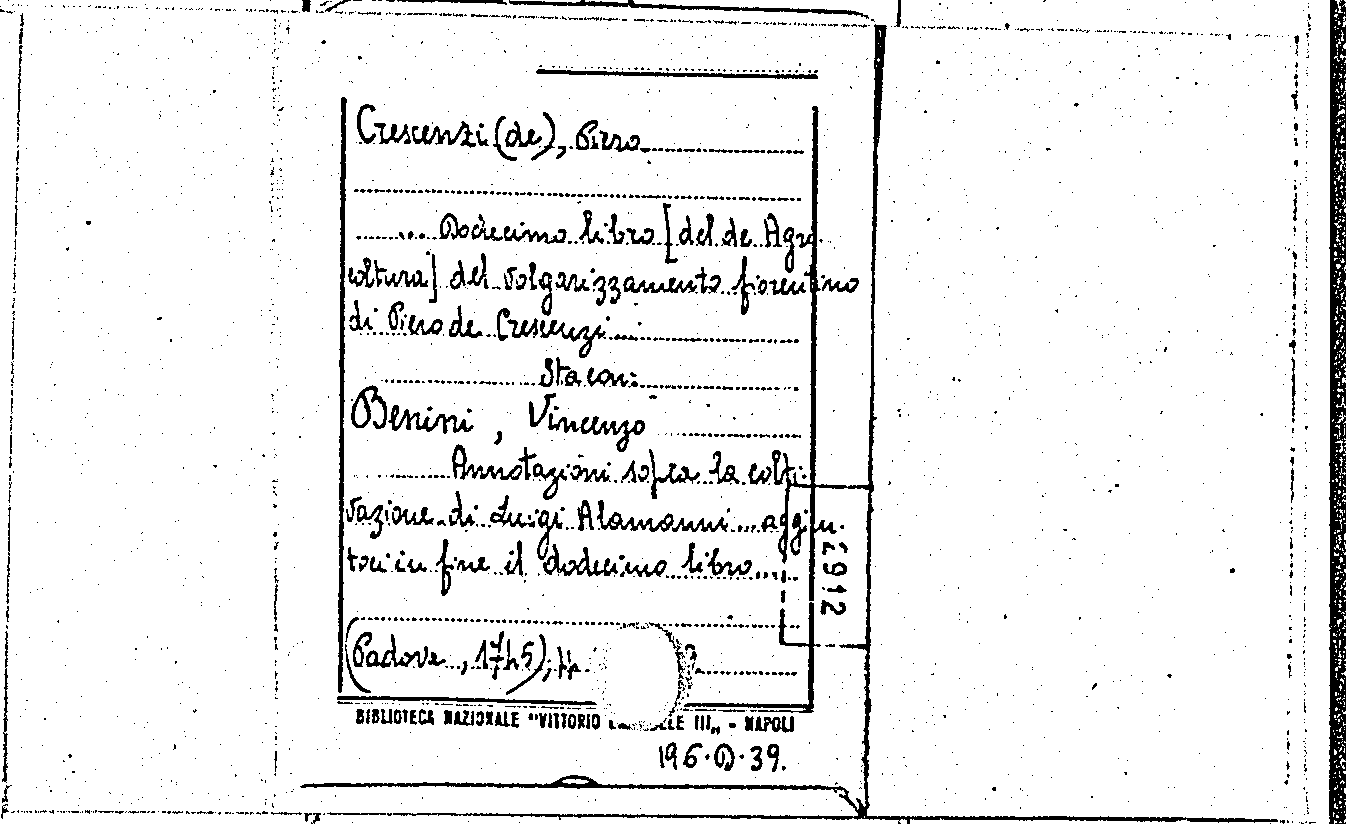 Crescenzi (de), Piero
... Dodecimo libro [del de Agri
coltura] del volgarizzamento fiorentino
di Piero de Crescenzi...
Sta con:
Benini, Vincenzo
Annotazioni sopra la colti-
vazione di Luigi Alamanni... aggiu-
tovi in fine il dodecimo libro....
(Padova, 1745),
BIBLIOTECA NAZIONALE "VITTORIO III„ - NAPOLI
196.39.